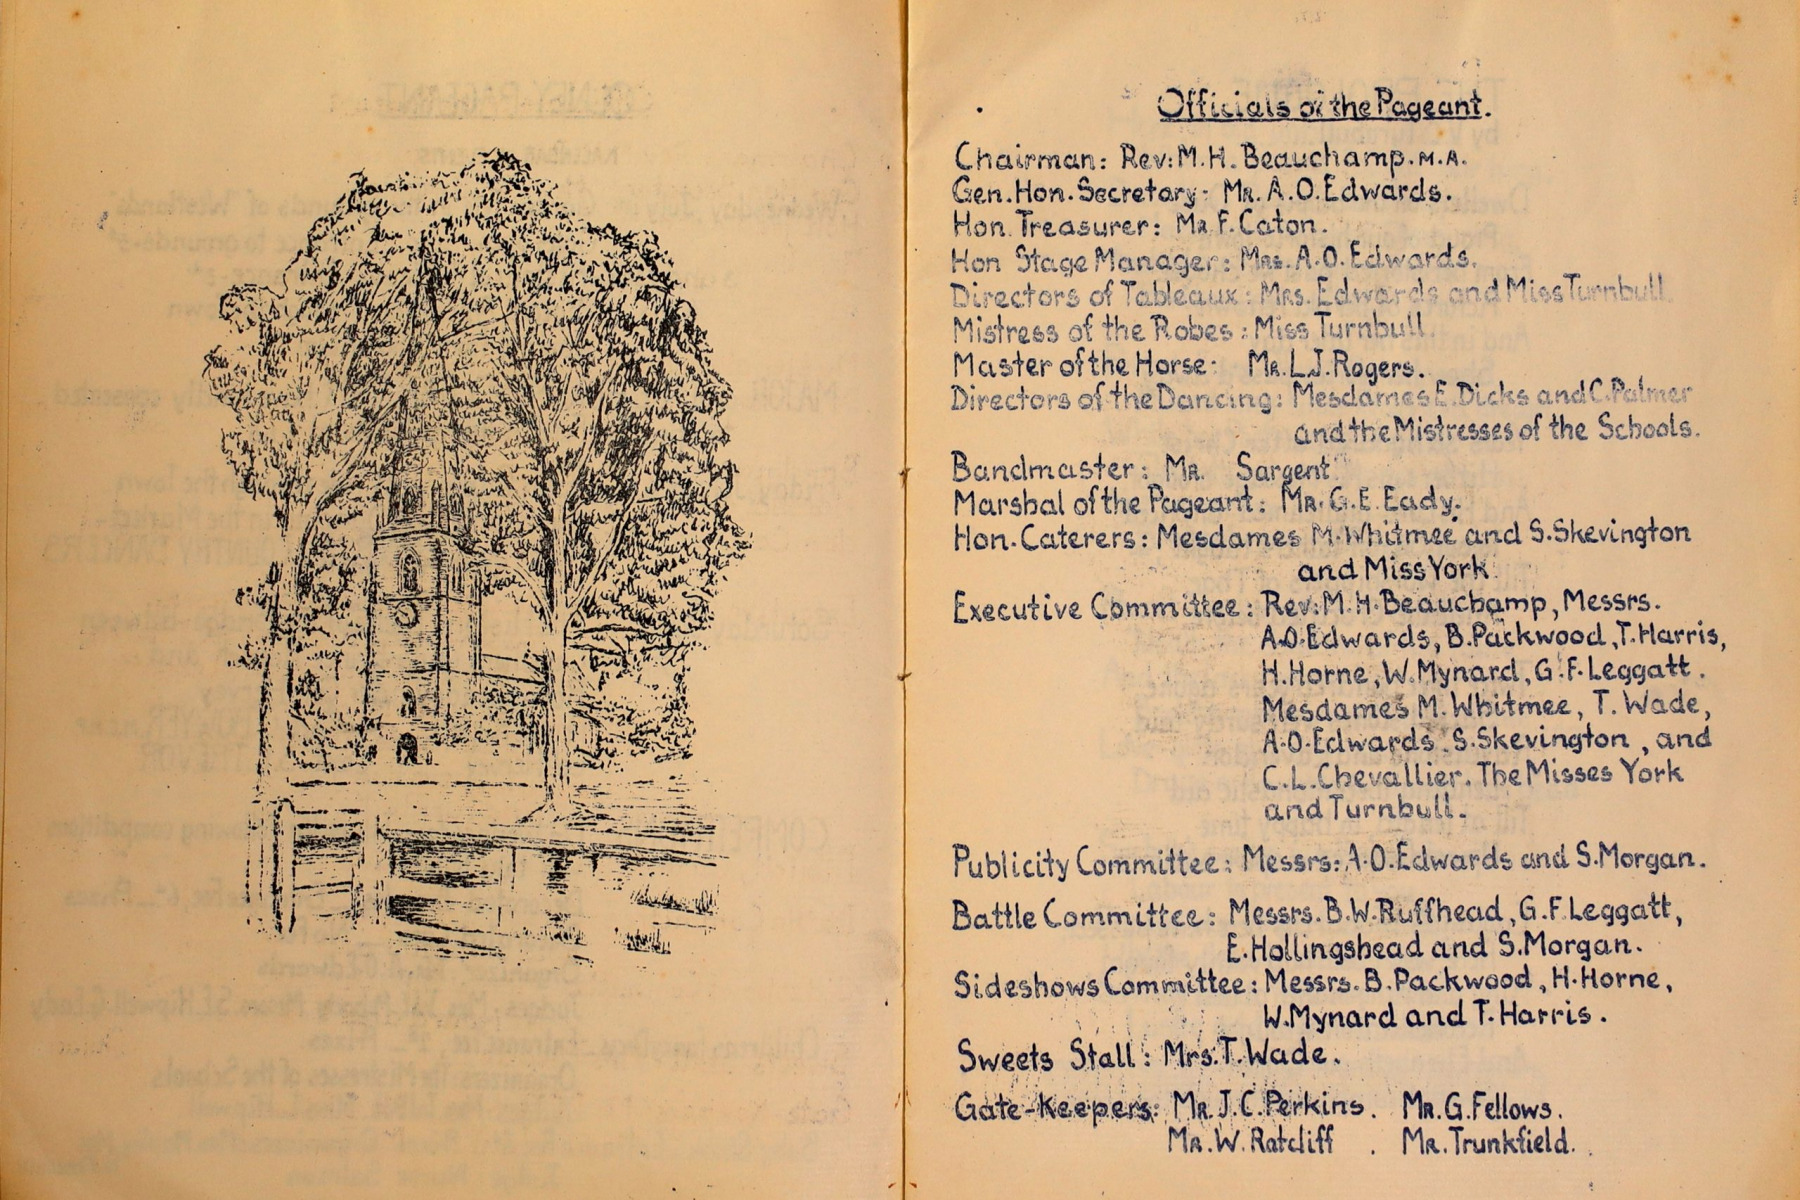 Officials of the Pageant.
Chairman: Rev: M. H. Beauchamp. M.A.
Gen. Hon. Secretary: Mr. A. O. Edwards.
Hon. Treasurer: Mr F. Caton.
Hon Stage Manager: Mrs. A. O. Edwards.
Directors of Tableaux: Mrs. Edwards and Miss Turnbull.
Mistress of the Robes: Miss Turnbull
Master of the Horse: Mr. L.J. Rogers.
Directors of the Dancing: Mesdames E. Dicks and C. Palmer
and the Mistresses of the Schools.
Bandmaster: Mr. Sargent
Marshal of the Pageant: Mr. G. E. Eady.
Hon. Caterers: Mesdames M. Whitmee and S. Skevington
and Miss York
Executive Committee: Rev: M. H. Beauchamp, Messrs.
A.O. Edwards, B. Packwood, T. Harris,
H. Horne, W. Mynard, G. F. Leggatt.
Mesdames M. Whitmee, T. Wade,
A.O. Edwards. S. Skevington, and
C. L. Chevallier. The Misses York
and Turnbull.
Publicity Committee: Messrs: A.O. Edwards and S. Morgan.
Battle Committee: Messrs. B. W. Ruffhead, G. F. Leggatt,
E. Hollingshead and S. Morgan.
Sideshows Committee: Messrs. B. Packwood, H. Horne,
W. Mynard and T. Harris.
Sweets Stall: Mrs. T. Wade.
Gate-Keepers: Mr. J. C. Perkins. Mr. G. Fellows.
Mr. W. Ratcliff. Mr. Trunkfield.